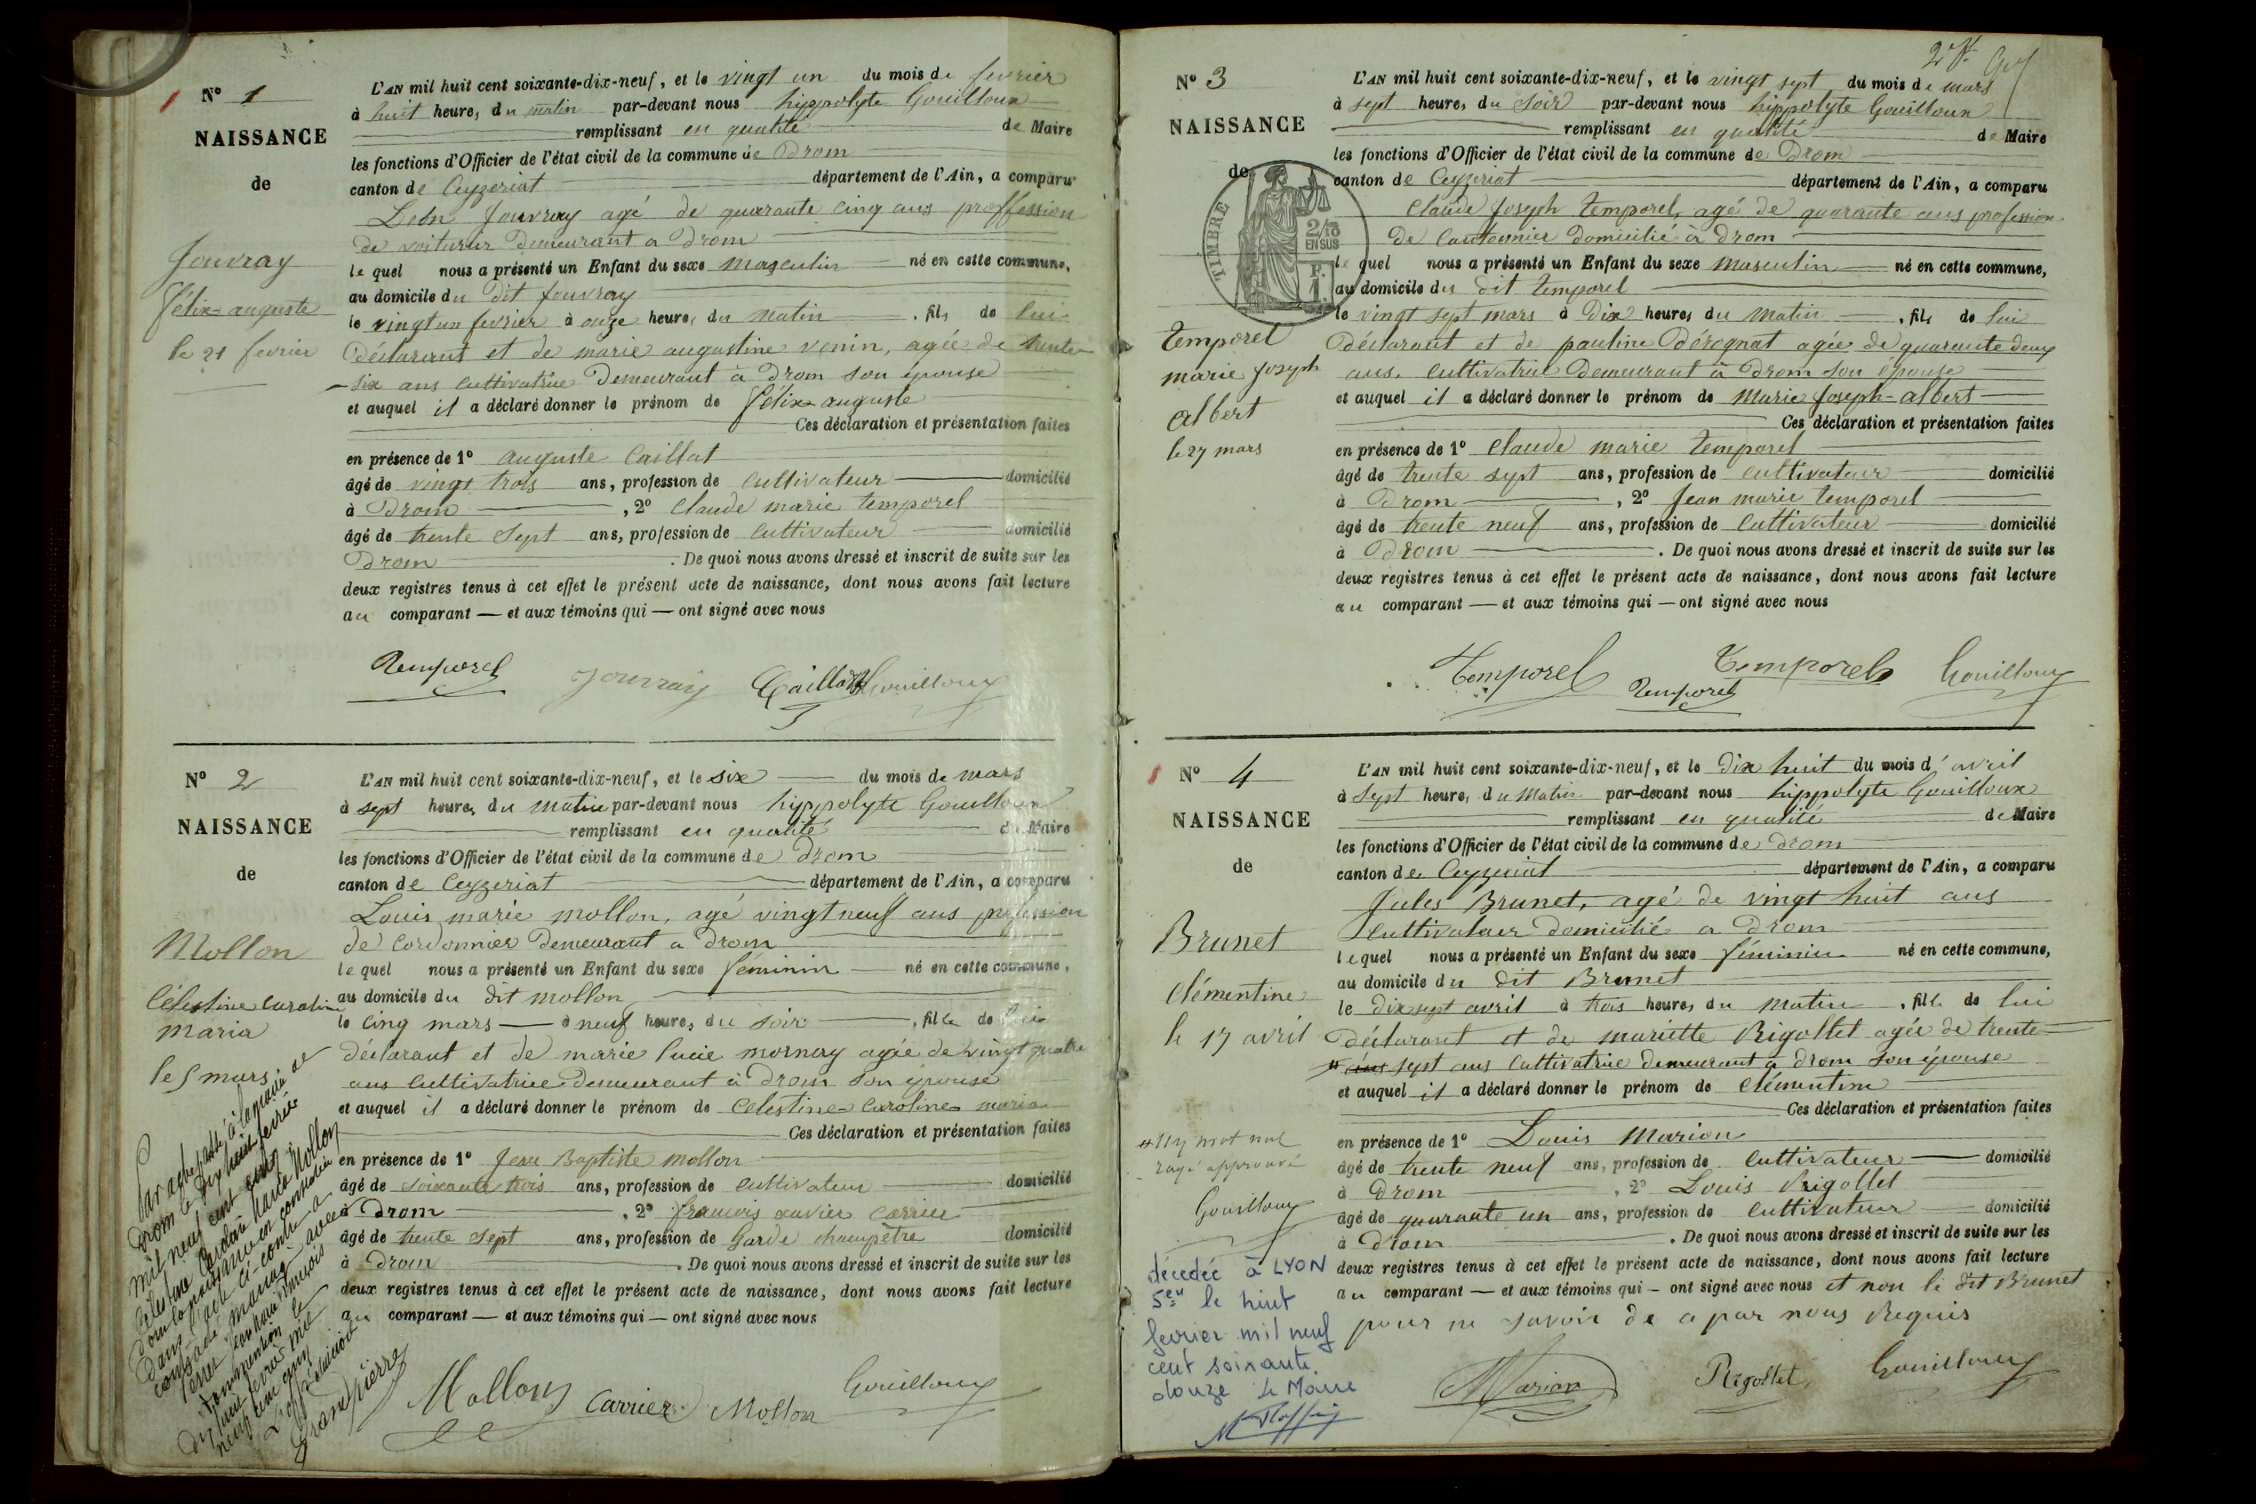 N° 1
NAISSANCE
de
Jouvray
Félix-auguste
le 21 fevrier
L'AN mil huit cent soixante-dix-neuf, et le vingt un du mois de fevrier
à huit heures du matin par-devant nous hippolyte Gouilloux
remplissant en qualité de Maire
les fonctions d'Officier de l'état civil de la commune de Drom
canton de Ceyzeriat département de l'Ain, a comparu
Léon Jouvray agé de quarante cinq ans proffession
de voiturur Demeurant a Drom
le quel nous a présenté un Enfant du sexe masculin né en cette commune,
au domicile du dit Jouvray
le vingt un fevrier à onze heures du matin, fils de lui
déclarant et de marie augustine venin, agée de trente
six ans cultivatrice Demeurant à Drom son épouse
et auquel il a déclaré donner le prénom de Félix-auguste
Ces déclaration et présentation faites
en présence de 1° auguste Caillat
âgé de vingt trois ans, profession de cultivateur domicilié
à Drom, 2° Claude marie temporel
âgé de trente sept ans, profession de cultivateur domicilié
Drom. De quoi nous avons dressé et inscrit de suite sur les
deux registres tenus à cet effet le présent acte de naissance, dont nous avons fait lecture
au comparant — et aux témoins qui — ont signé avec nous
Temporel Jouvray Caillat Gouilloux
N° 2
NAISSANCE
de
Mollon
Célestine Caroline
maria
le 5 mars
L'AN mil huit cent soixante-dix-neuf, et le six du mois de mars
à sept heures du matin par-devant nous hippolyte Gouilloux
remplissant en qualité de Maire
les fonctions d'Officier de l'état civil de la commune de Drom
canton de Ceyzeriat département de l'Ain, a comparu
Louis marie mollon, agé vingt neuf ans profession
de Cordonnier Demeurant a Drom
le quel nous a présenté un Enfant du sexe féminin né en cette commune,
au domicile du dit mollon
le cinq mars à neuf heures du soir, fille de lui
déclarant et de marie lucie mornay agée de vingt quatre
ans cultivatrice Demeurant à Drom son épouse
et auquel il a déclaré donner le prénom de Celestine Caroline maria
Ces déclaration et présentation faites
en présence de 1° Jean Baptiste mollon
âgé de soixante trois ans, profession de cultivateur domicilié
à Drom, 2° francois carrier
âgé de trente sept ans, profession de Garde champêtre domicilié
à Drom. De quoi nous avons dressé et inscrit de suite sur les
deux registres tenus à cet effet le présent acte de naissance, dont nous avons fait lecture
au comparant — et aux témoins qui — ont signé avec nous
Par acte passé à la mairie de
Drom le dix huit
mil neuf cent cinq
Célestine Maria Mollon
dont la naissance est constatée
dans l'acte ci-contre a
contracté mariage avec
Perret Jean Marie François
Dix huit fevrier mil
neuf cent cinq
Grandpierre
Mollon Carrier Mollon Gouilloux
2
N° 3
NAISSANCE
de
TIMBRE
2/10
EN SUS
temporel
marie Joseph
albert
le 27 mars
L'AN mil huit cent soixante-dix-neuf, et le vingt sept du mois de mars
à sept heures du soir par-devant nous hippolyte Gouilloux
remplissant en qualité de Maire
les fonctions d'Officier de l'état civil de la commune de Drom
canton de Ceyzeriat département de l'Ain, a comparu
Claude Joseph temporel, agé de quarante ans profession
de Cantonnier domicilié à Drom
le quel nous a présenté un Enfant du sexe masculin né en cette commune,
au domicile du dit temporel
le vingt sept mars à dix heures du matin, fils de lui
déclarant et de pauline Dérognat agée de quarante deux
ans. cultivatrice Demeurant à Drom son épouse
et auquel il a déclaré donner le prénom de Marie Joseph-albert
Ces déclaration et présentation faites
en présence de 1° Claude marie temporel
âgé de trente sept ans, profession de cultivateur domicilié
à Drom, 2° Jean marie temporel
âgé de trente neuf ans, profession de cultivateur domicilié
à Drom. De quoi nous avons dressé et inscrit de suite sur les
deux registres tenus à cet effet le présent acte de naissance, dont nous avons fait lecture
au comparant — et aux témoins qui — ont signé avec nous
Temporel Temporel Temporel Gouilloux
N° 4
NAISSANCE
de
Brunet
Clémentine
le 17 avril
L'AN mil huit cent soixante-dix-neuf, et le dix huit du mois d'avril
à sept heures du matin par-devant nous hippolyte Gouilloux
remplissant en qualité de Maire
les fonctions d'Officier de l'état civil de la commune de Drom
canton de Ceyzeriat département de l'Ain, a comparu
Jules Brunet, agé de vingt huit ans
cultivateur domicilié a Drom
lequel nous a présenté un Enfant du sexe féminin né en cette commune,
au domicile du dit Brunet
le dix sept avril à trois heures du matin, fille de lui
déclarant et de mariette Rigollet agée de trente
ans sept ans cultivatrice demeurant à Drom son épouse
et auquel il a déclaré donner le prénom de Clémentine
Ces déclaration et présentation faites
en présence de 1° Louis Marion
âgé de trente neuf ans, profession de cultivateur domicilié
à Drom, 2° Louis Rigollet
âgé de quarante un ans, profession de cultivateur domicilié
à Drom. De quoi nous avons dressé et inscrit de suite sur les
deux registres tenus à cet effet le présent acte de naissance, dont nous avons fait lecture
au comparant — et aux témoins qui — ont signé avec nous et non le dit Brunet
pour ne savoir de a par nous Requis
mot nul
rayé approuvé
Gouilloux
décedée à LYON
5eu le huit
fevrier mil neuf
cent soixante
douze Le Maire
Marion Rigollet Gouilloux